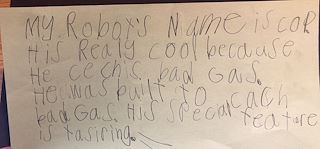 My Robot's Name is cop
His Realy cool because
He cechis bad Gas.
He was built to cach
bad Gas. His specal feature
is tasiring.